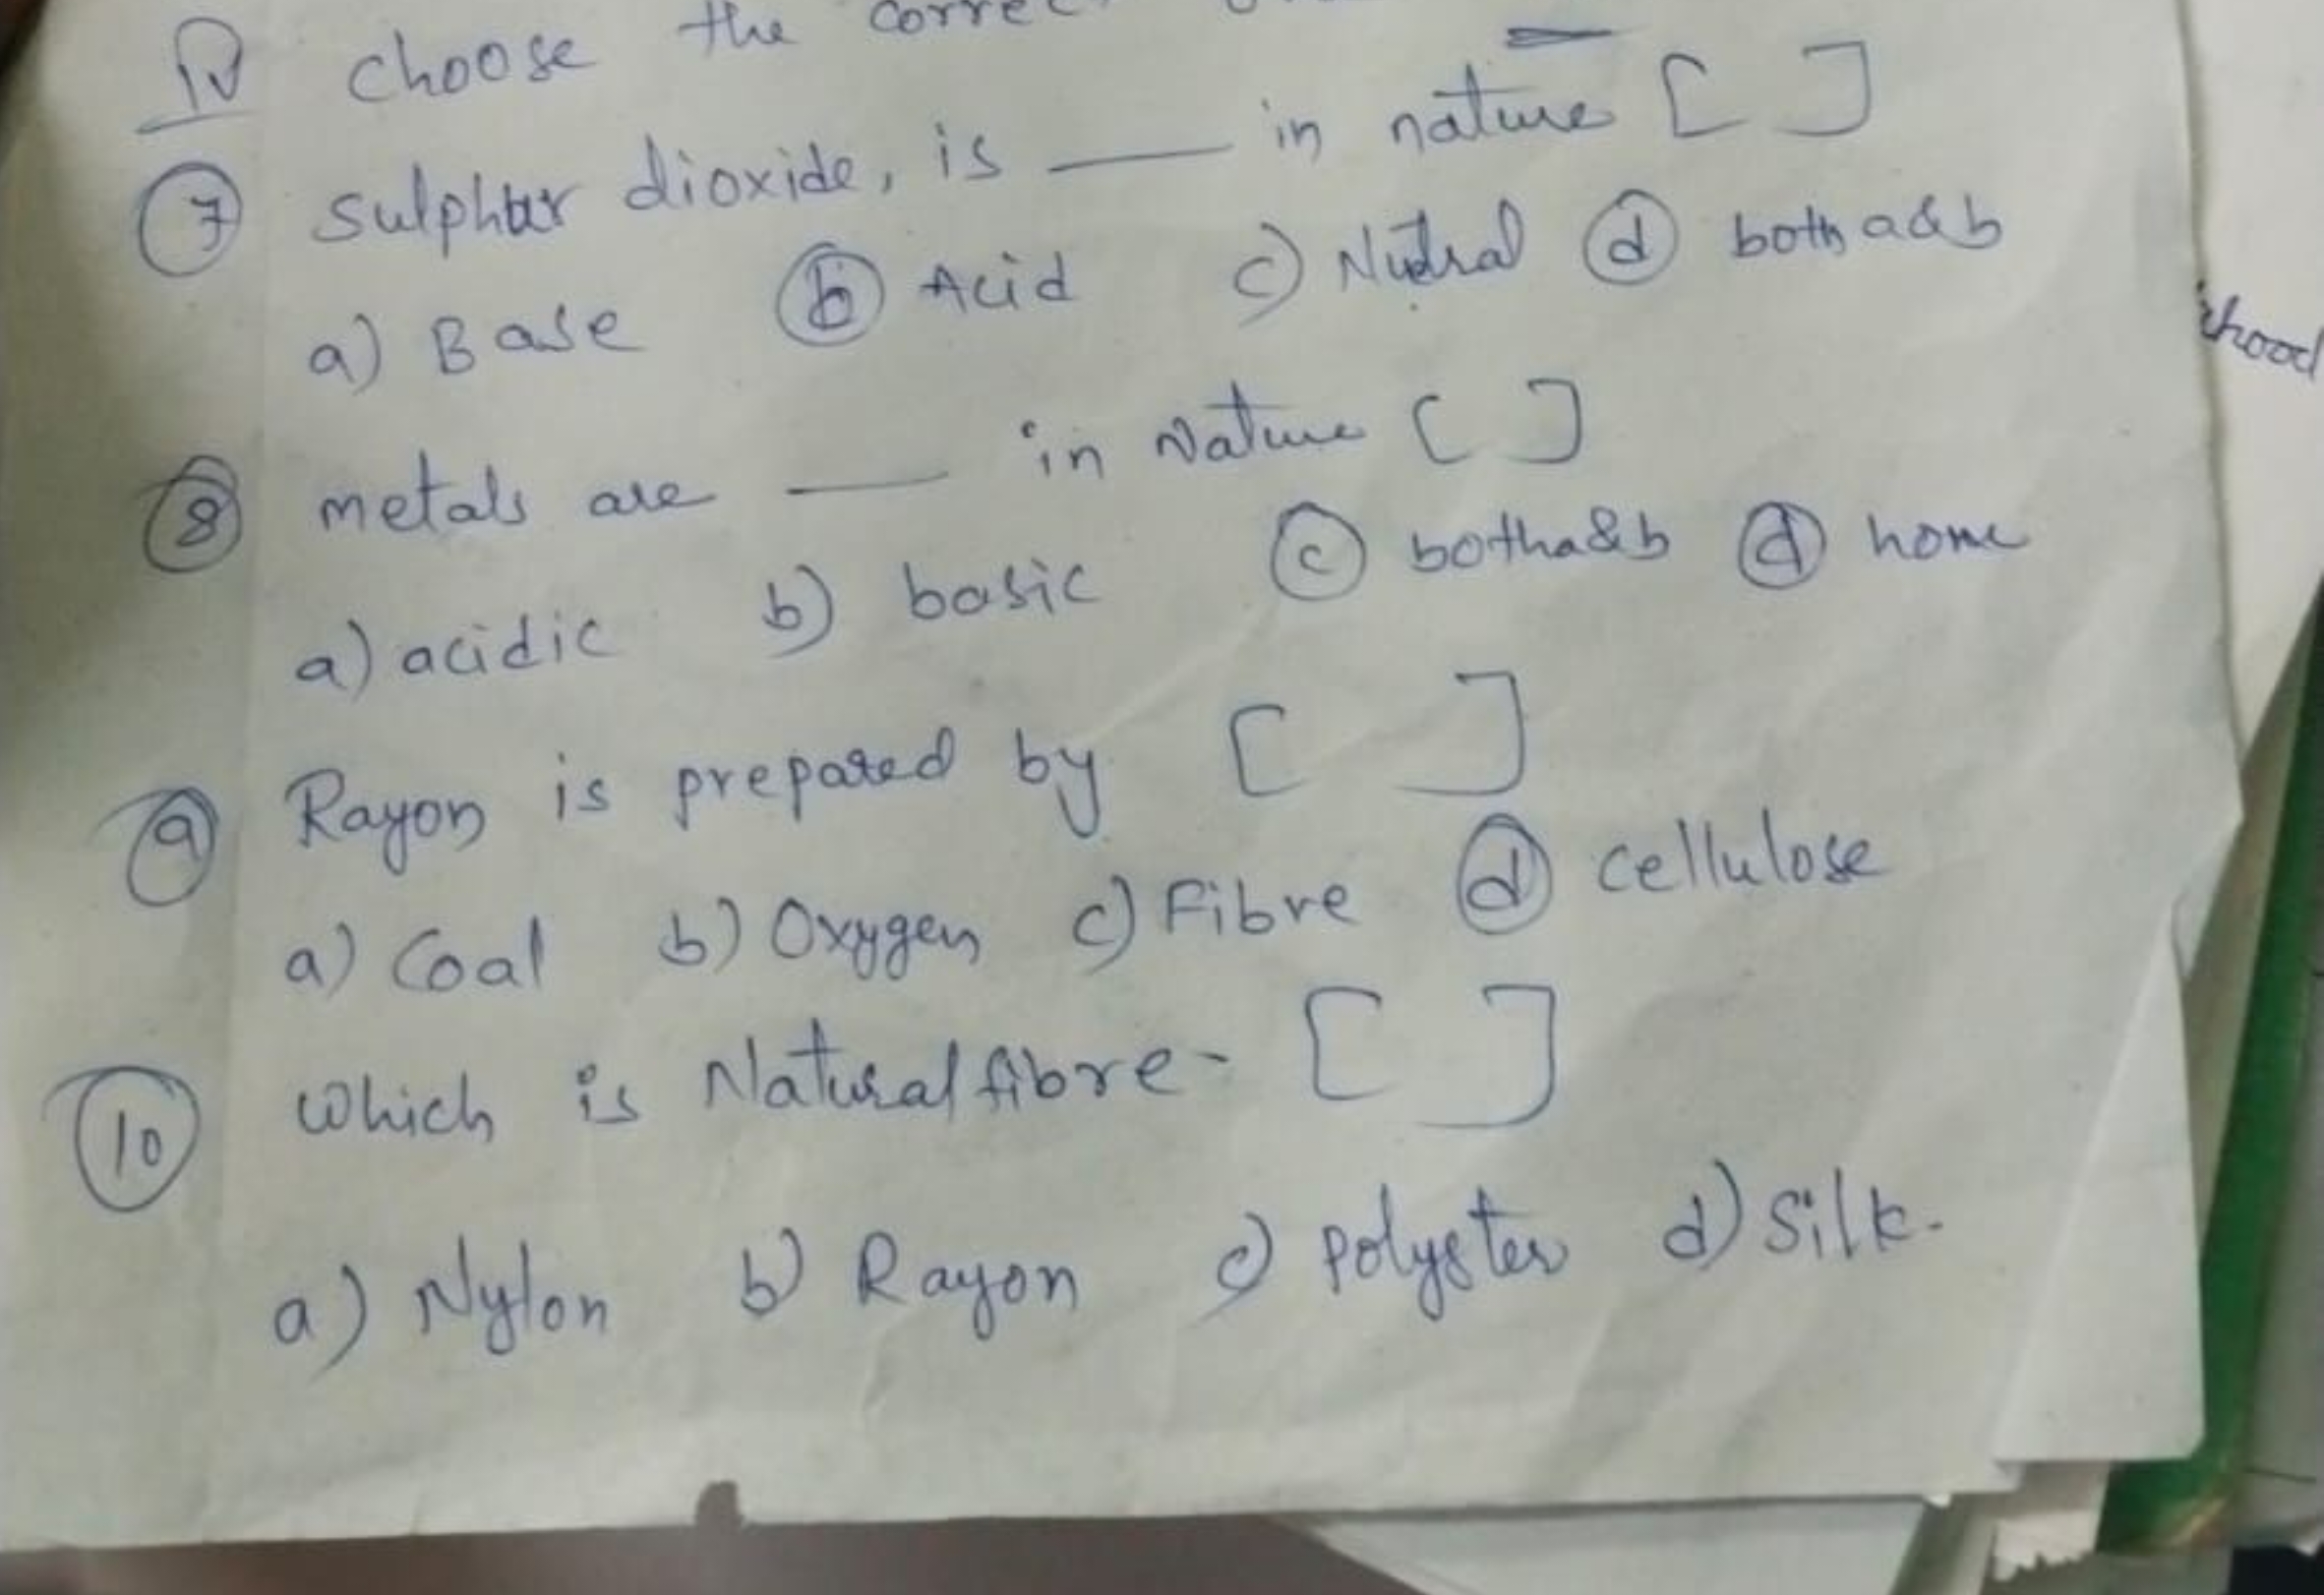 IV choose the correc
7 sulphur dioxide, is ___ in nature [ ]
a) Base b Acid c) Nutral d both a&b
8 metals are ___ in Nature [ ]
a) acidic b) basic c both a&b d home
9 Rayon is prepared by [ ]
a) Coal b) Oxygen c) Fibre d cellulose
10 which is Natural fibre - [ ]
a) Nylon b) Rayon c) polyster d) silk.
hood